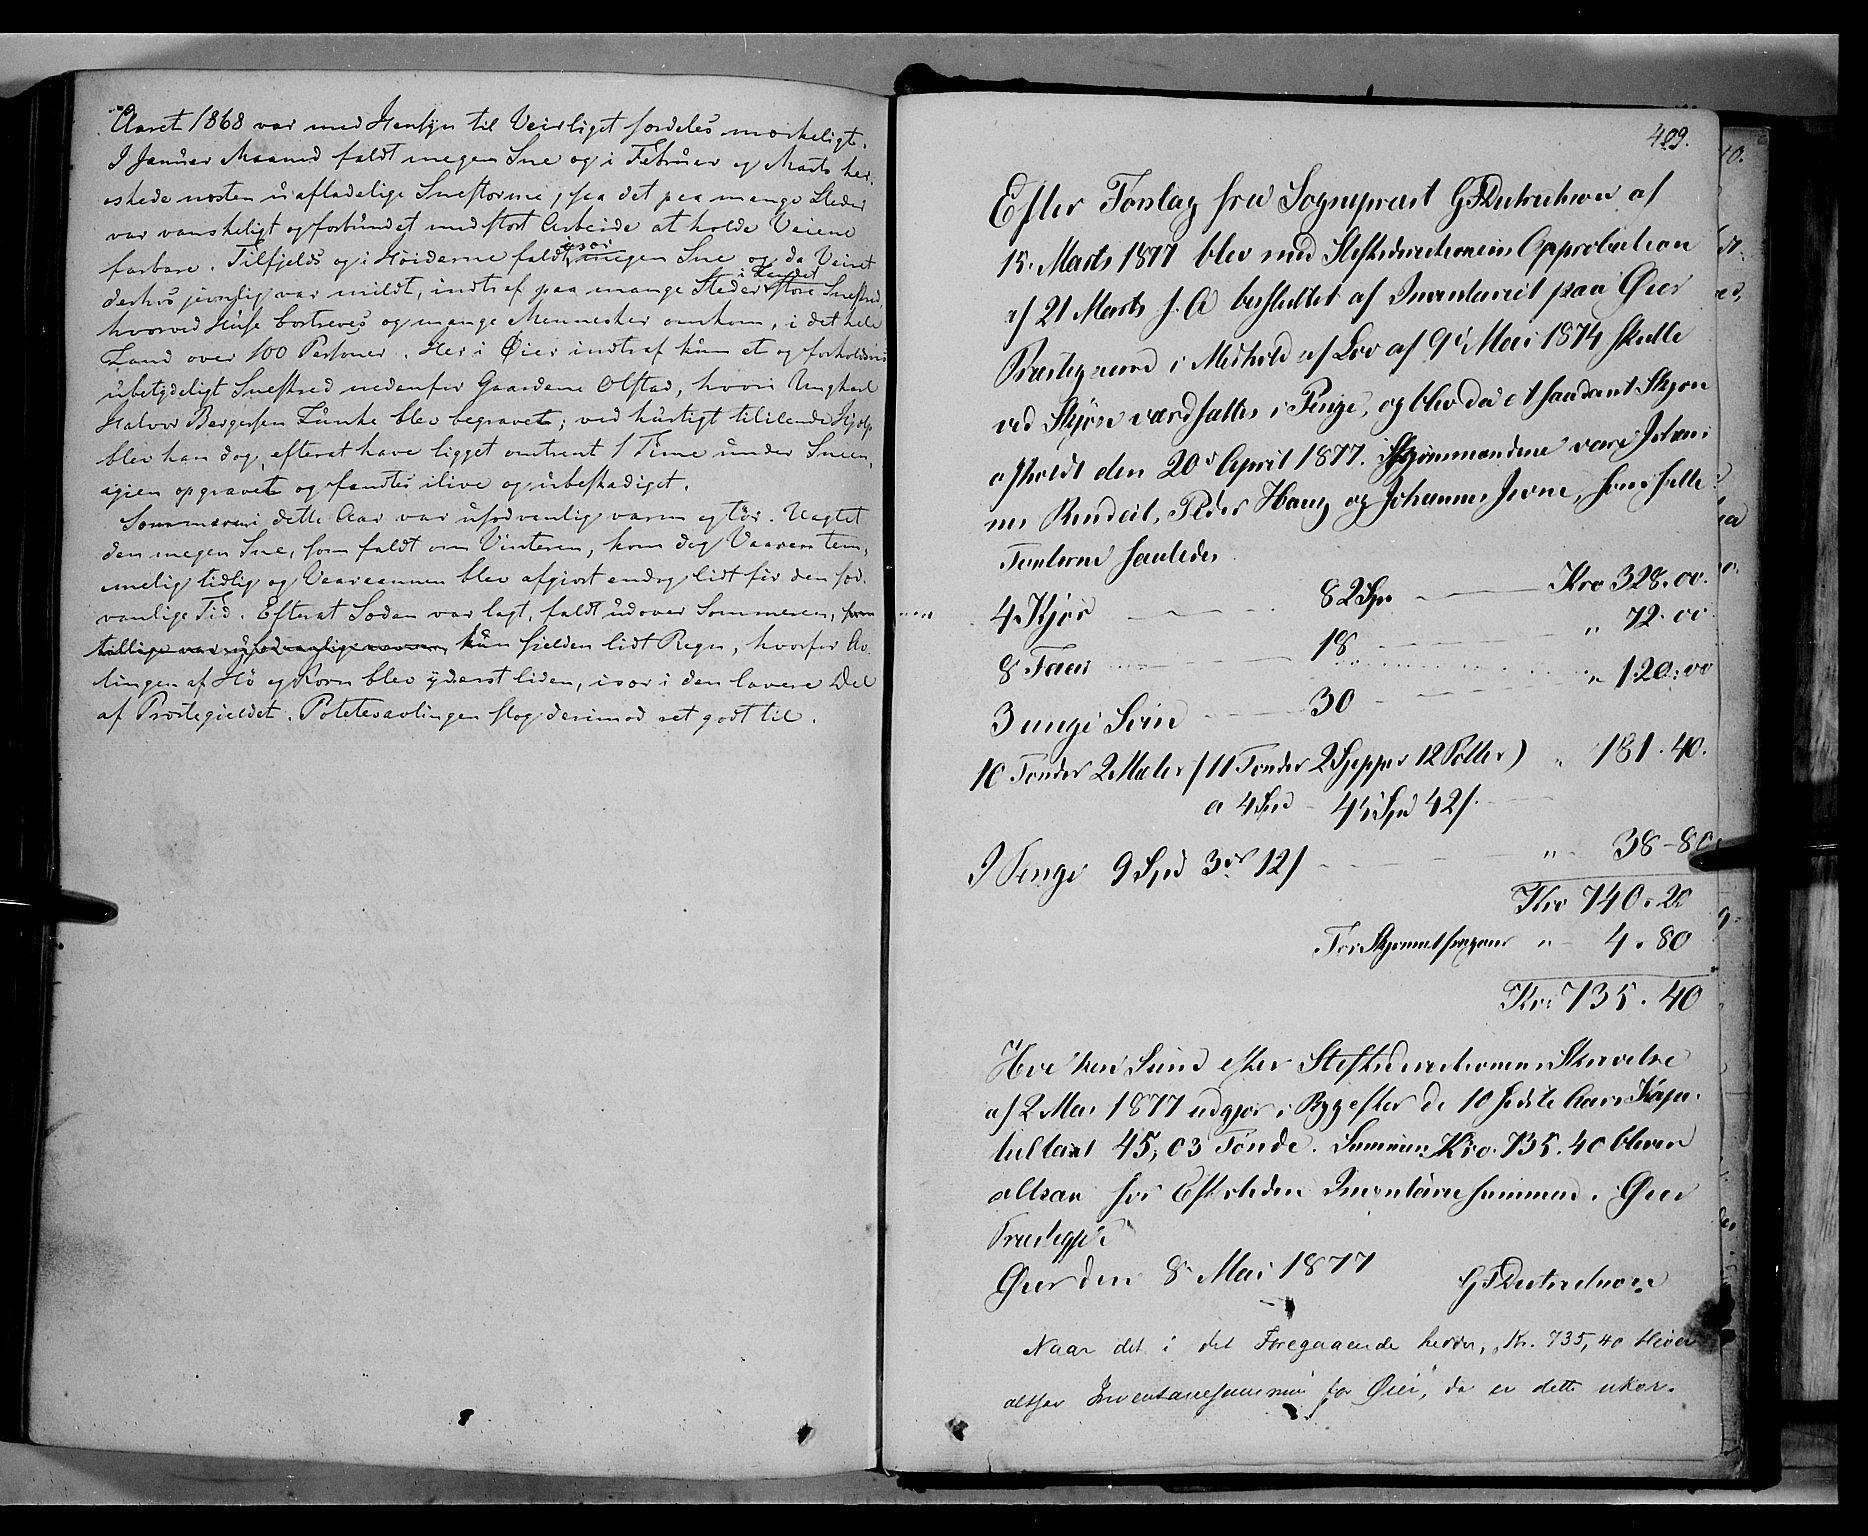 Aaret 1868 var med Hensyn til Veirliget særdeles mærkeligt.
I Januar Maaned faldt megen Sne og i Februar og Marts her-
skede næsten uafladelige Snestorme, saa det paa mange Steder
var vanskeligt og forbundet med stort Arbeide at holde Veiene
farbare. Tilfjelds og i Høiderne faldt især megen Sne og da Veiret
derhos jevnlig var mildt, indtraf paa mange Steder i Landet store Sneskred,
hvorved Huse bortreves og mange Mennesker omkom, i det hele
Land over 100 Personer. Her i Øier indtraf kun et og forholdsvis
ubetydeligt Sneskred nedenfor Gaardene Olstad, hvori Ungkarl
Halvor Bergersen Lunke blev begravet; ved hurtigt tililende Hjælp
blev han dog, efterat have ligget omtrent 1 Time under Sneen,
igien opgravet og fandtes ilive og ubeskadiget.
Sommeren i dette Aar var usædvanlig varm og tør. Uagtet
den megen Sne, som faldt om Vinteren, kom dog Vaaren tem-
melig tidlig og Vaaraannen blev afgiort endog lidt før den sæd-
vanlige Tid. Efterat Sæden var lagt, faldt udover Sommeren, som
tillige var usædvanlig varm, kun sielden lidt Regn, hvorfor Av-
lingen af Hø og Korn blev yderst liden, især i den lavere Del
af Præstegieldet. Potetesavlingen slog derimod ret godt til.
409.
Efter Forslag fra Sognepræst G F Dietrichson af
15. Marts 1877 blev med Stiftsdirectionens Approbation
af 21 Marts s. A besluttet af Inventariet paa Øier
Præstegaard i Medhold af Lov af 9de Mai 1874 skulle
ved Skjøn værdsættes i Penge, og blev da et saadant Skjøn
afholdt den 20de April 1877. Skjønsmændene vare Johan-
nes Rindal, Peder Haug og Johannes Jevne, som satte
Taxterne saaledes
4 Kjør 82 Spd Kro 328.00.
8 Faar 18 " 72.00
3 unge Svin 30 " 120.00
10 Tønder 2 Mæler (11 Tønder 2 Skjepper 12 Potter) " 181.40.
a 4 Spd – 45 Spd 42 s.
I Penge 9 Spd 3 ort 12 s " 38-80
Kro 740.20
For Skjønnet fragaar " 4.80
Kr. 735.40
Hvilken Sum efter Stiftsdirectionens Skrivelse
af 2 Mai 1877 udgjør i Byg efter de 10 sidste Aars Kapi-
teltaxt 45,03 Tønde. Summen Kro. 735.40 bliver
altsaa for Eftertiden Inventariesummen i Øier
Præstegjeld
Øier den 8 Mai 1877 G F Dietrichson
Naar det i det Foregaaende heder, Kr. 735,40 bliver
altsaa Inventariesummen for Øier, da er dette ukor-